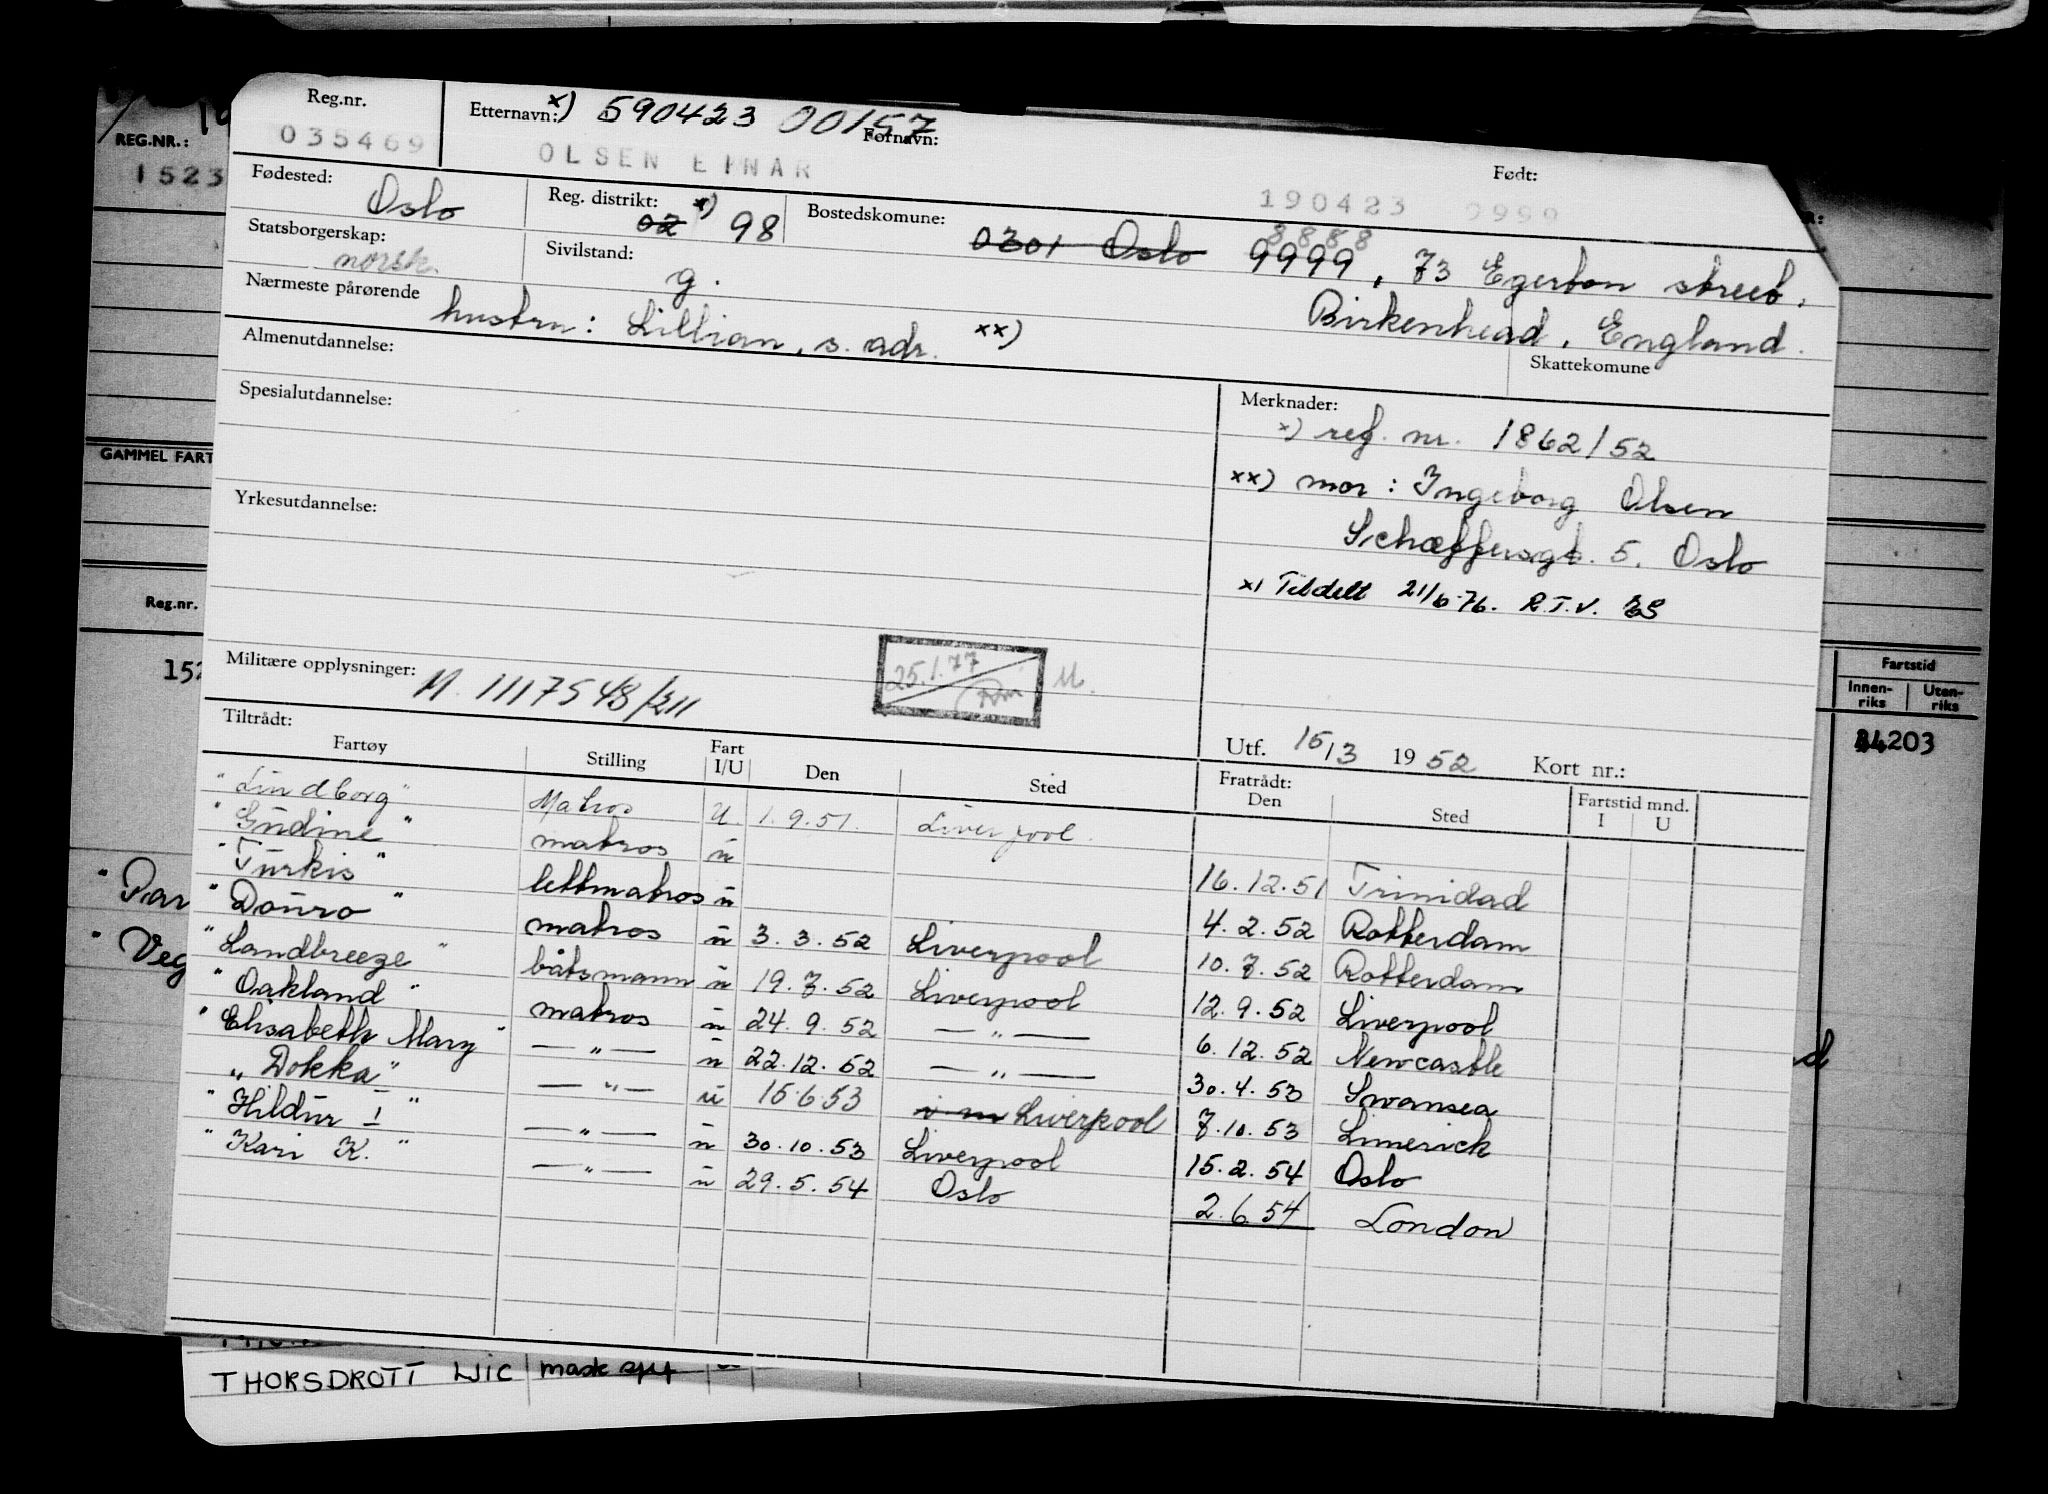 REG.NR.:
1523
GAMMEL FART
Reg.nr.
152
" Par
" Veg
Reg.nr.
035469
Etternavn: x) 590423 00157
Fornavn:
OLSEN EINAR
Født:
190423 9999
Fødested: Oslo
Reg. distrikt: x) 02 98
Bostedskomune: 0301 Oslo 8888 9999, 73 Egerton street,
Birkenhead, England.
Statsborgerskap: norsk.
Sivilstand: g.
Nærmeste pårørende hustru: Lillian, s. adr. xx)
Skattekomune
Almenutdannelse:
Spesialutdannelse:
Yrkesutdannelse:
Merknader:
x) reg. nr. 1862/52
xx) mor: Ingeborg Olsen
Schæffersgt. 5. Oslo
x) Tildelt 21/6-76. R.T.V.
Militære opplysninger: M. 1117548/211
25.1.77
M.
Utf. 15/3 1952 Kort nr.:
Tiltrådt:
Fratrådt:
Fartstid mnd.
Fartøy Stilling Fart I/U Den Sted Den Sted I U
"Lindborg" Matros U. 1.9.51. Liverpool.
"Gudine" matros u 16.12.51 Trinidad
"Turkis" lettmatros u 4.2.52 Rotterdam
"Douro" matros u 3.3.52 Liverpool 10.7.52 Rotterdam
"Landbreeze" båtsmann u 19.7.52 Liverpool 12.9.52 Liverpool
"Oakland" matros u 24.9.52 — " — 6.12.52 Newcastle
"Elisabeth Mary" — " — u 22.12.52 — " — 30.4.53 Swansea
"Dokka" — " — u 15.6.53 Liverpool 7.10.53 Limerick
"Hildur I" — " — u 30.10.53 Liverpool 15.2.54 Oslo
"Kari K." — " — u 29.5.54 Oslo 2.6.54 London
Fartstid
Innen-riks Uten-riks
203
d
THORSDROTT LJIC mask